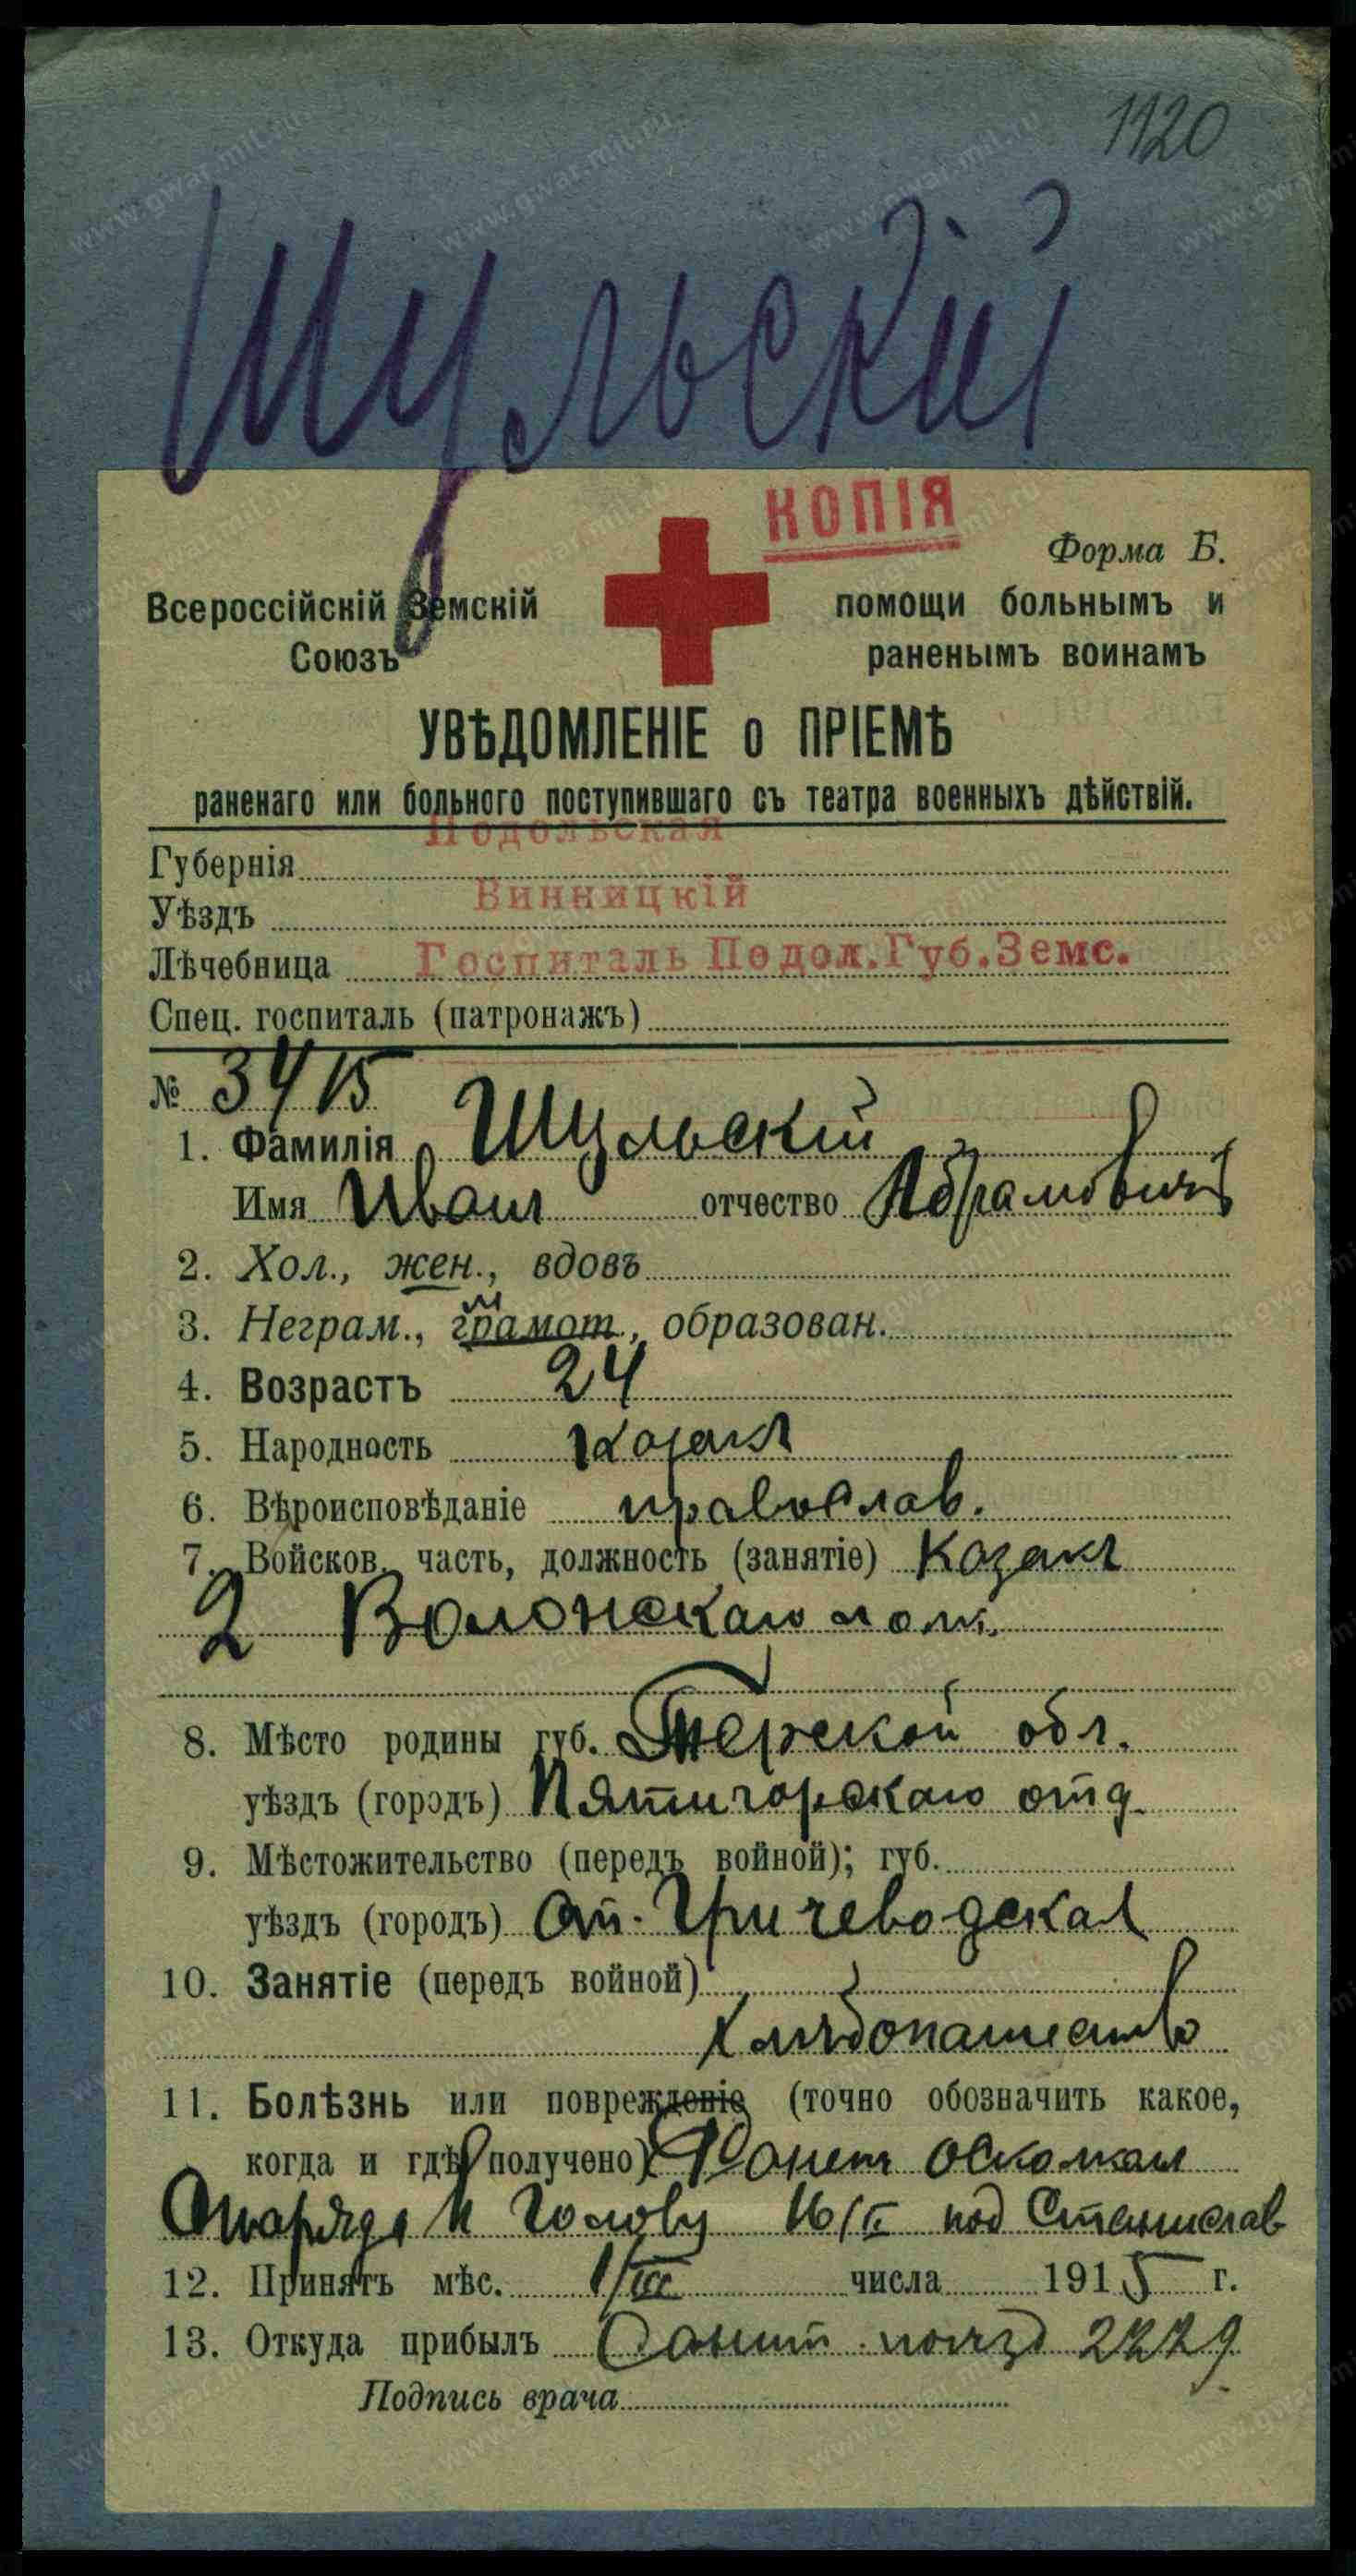 1120
Шульскій
КОПІЯ
Форма Б.
Всероссійскій Земскій помощи больнымъ и
Союзъ раненымъ воинамъ
УВѢДОМЛЕНІЕ о ПРІЕМѢ
раненаго или больного поступившаго съ театра военныхъ дѣйствій.
Губернія Подольская
Уѣздъ Винницкій
Лѣчебница Госпиталь Подол.Губ.Земс.
Спец. госпиталь (патронажъ)
№ 3415
1. Фамилія Шульскій
Имя Иванъ отчество Абрамовичъ
2. Хол., жен., вдовъ
3. Неграм., грамот., образован.
4. Возрастъ 24
5. Народность Козакъ
6. Вѣроисповѣданіе православ.
7. Войсков. часть, должность (занятіе) Козакъ
2 Волонскаго полк.
8. Мѣсто родины губ. Терской обл.
уѣздъ (городъ) Пятигорскаго отд.
9. Мѣстожительство (передъ войной); губ.
уѣздъ (городъ) Ст. Гричеводская
10. Занятіе (передъ войной)
Хлѣбопашество
11. Болѣзнь или поврежденіе (точно обозначить какое,
когда и гдѣ получено) Ранен осколкам
Снаряда в голову 16/II под Станислав
12. Принятъ мѣс. 1/III числа 1915 г.
13. Откуда прибылъ Санит. поѣзд
Подпись врача
www.gwar.mil.ru